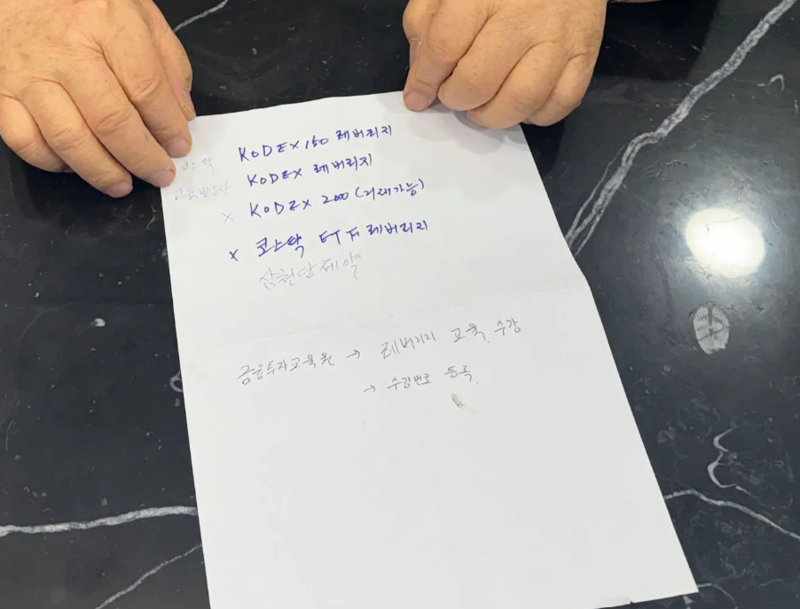 KODEX 150 레버리지
KODEX 레버리지
x KODEX 200 (거래가능)
x 코스닥 ETF 레버리지
삼천당제약
금융투자교육원 → 레버리지 교육 수강
→ 수강번호 등록.